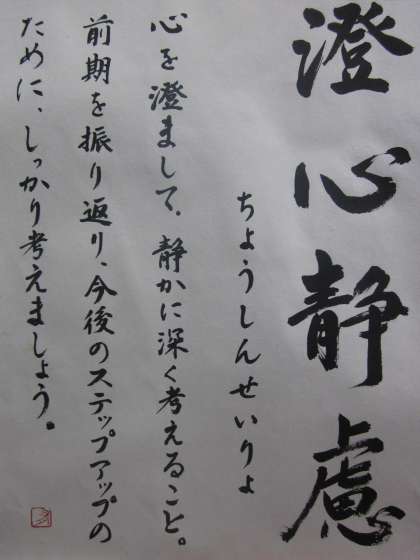 澄心静慮
ちょうしんせいりょ
心を澄まして、静かに深く考えること。
前期を振り返り、今後のステップアップの
ために、しっかり考えましょう。